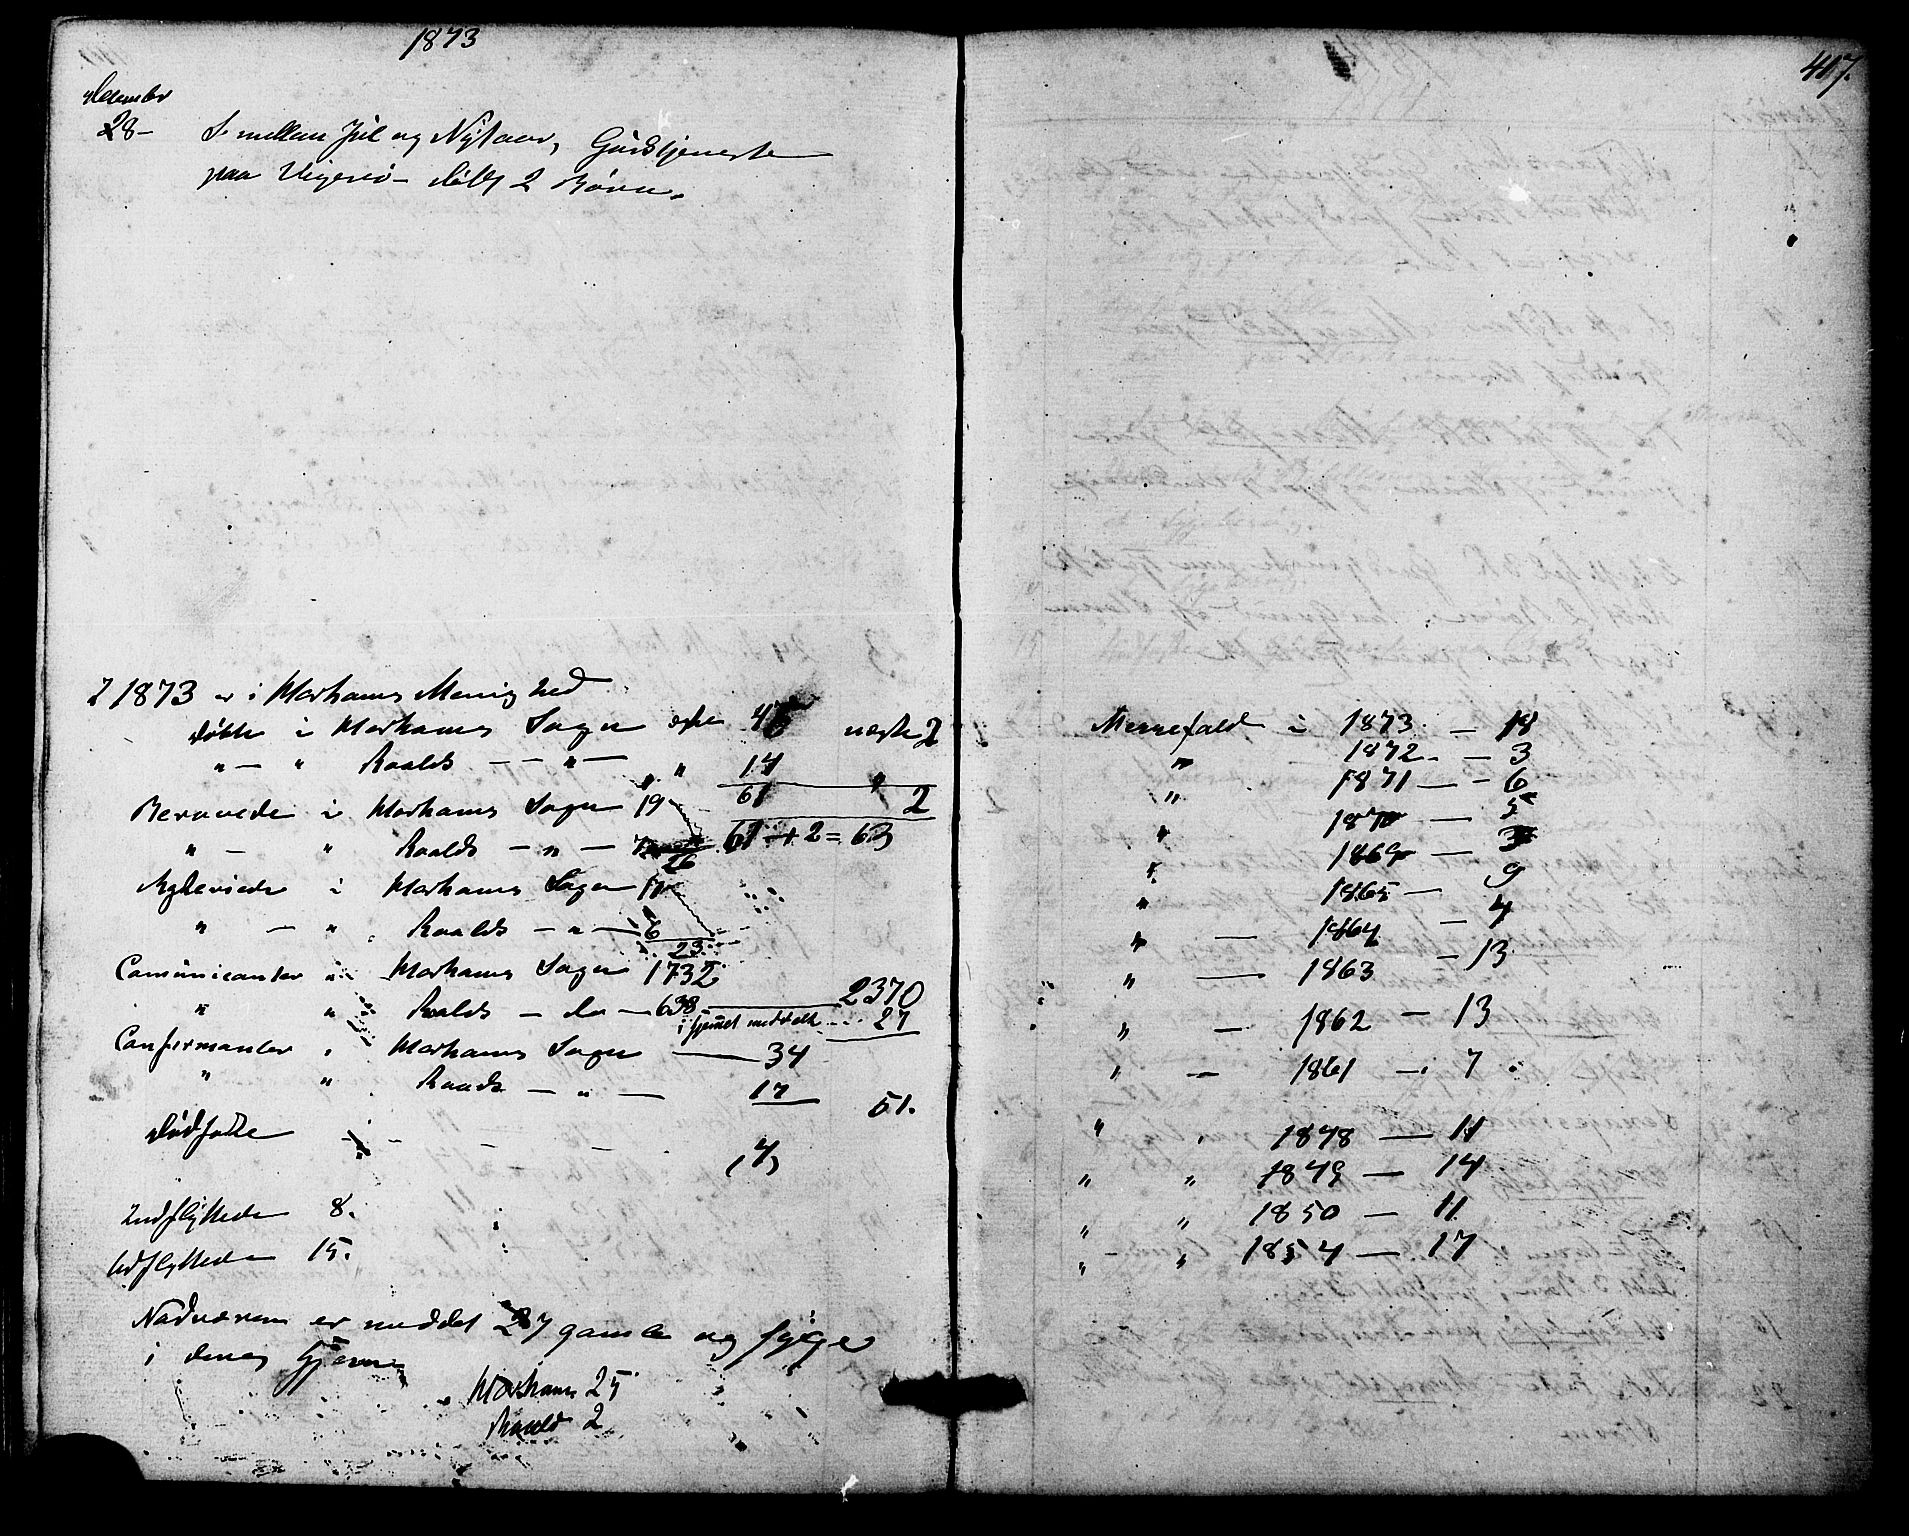 1873
December
28- S. mellem Jul og Nytaar, Gudstjeneste
paa Vigerø - døbt 2 Børn.
I 1873 er i Harhams Menighed
døbte i Harhams Sogn ægte 47 uægte 2
" — " Roalds — " — " 14 "
Begravede i Harhams Sogn 19 61 2
" — " Roalds — " — 7 61 + 2 = 63
26
Ægteviede i Harhams Sogn 17
" — " Roalds — " — 6
23
Comunicanter i Harhams Sogn 1732
" " Roalds — do — 638 — 2370
i Hjemmet meddelt .... 27
Confirmanter i Harhams Sogn — 34
" " Roalds — " — 17 51.
Dødfødte i — — — (4)
Indflyttede 8.
Udflyttede 15.
Nadveren er meddelt 27 gamle og syge
i deres Hjem
Harhams 25
Roald 2
417.
Mernefald i 1873 — 18
" 1872. — 3
" 1871 — 6
" 1870 — 5
" 1869 — 3
" 1865 — 9
" 1864 — 4
" — 1863 — 13
" — 1862 — 13
" — 1861 — 7
" 1848 — 11
" " 1849 — 14
" " 1850 — 11
" " 1854 — 17